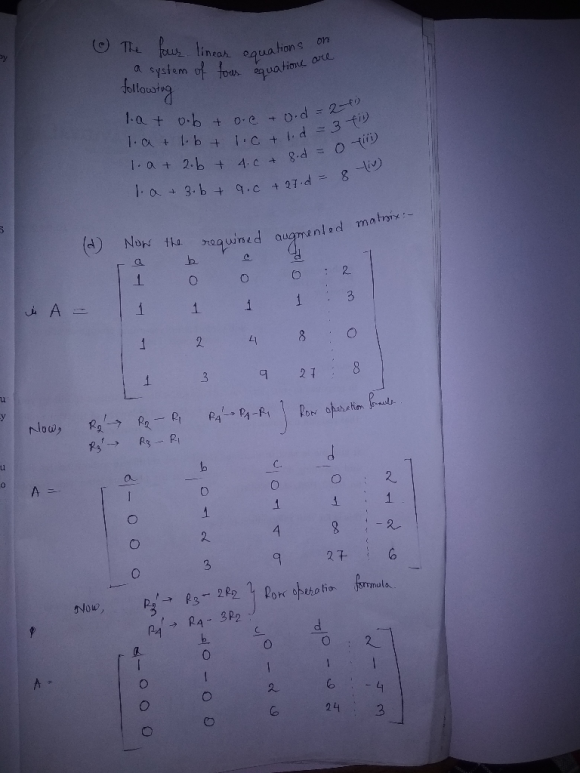 (c) The four linear equations on
a system of four equations are
following
1.a + 0.b + 0.c + 0.d = 2 -(i)
1.a + 1.b + 1.c + 1.d = 3 -(ii)
1.a + 2.b + 4.c + 8.d = 0 -(iii)
1.a + 3.b + 9.c + 27.d = 8 -(iv)
(d) Now the required augmented matrix:-
a b c d
1 0 0 0 : 2
A = 1 1 1 1 : 3
1 2 4 8 : 0
1 3 9 27 : 8
Now, R2' → R2 - R1 R4' → R4 - R1 } Row operation formula
R3' → R3 - R1
a b c d
A = 1 0 0 0 : 2
0 1 1 1 : 1
0 2 4 8 : -2
0 3 9 27 : 6
Now, R3' → R3 - 2R2 } Row operation formula
R4' → R4 - 3R2
a b c d
1 0 0 0 : 2
A = 0 1 1 1 : 1
0 0 2 6 : -4
0 0 6 24 : 3